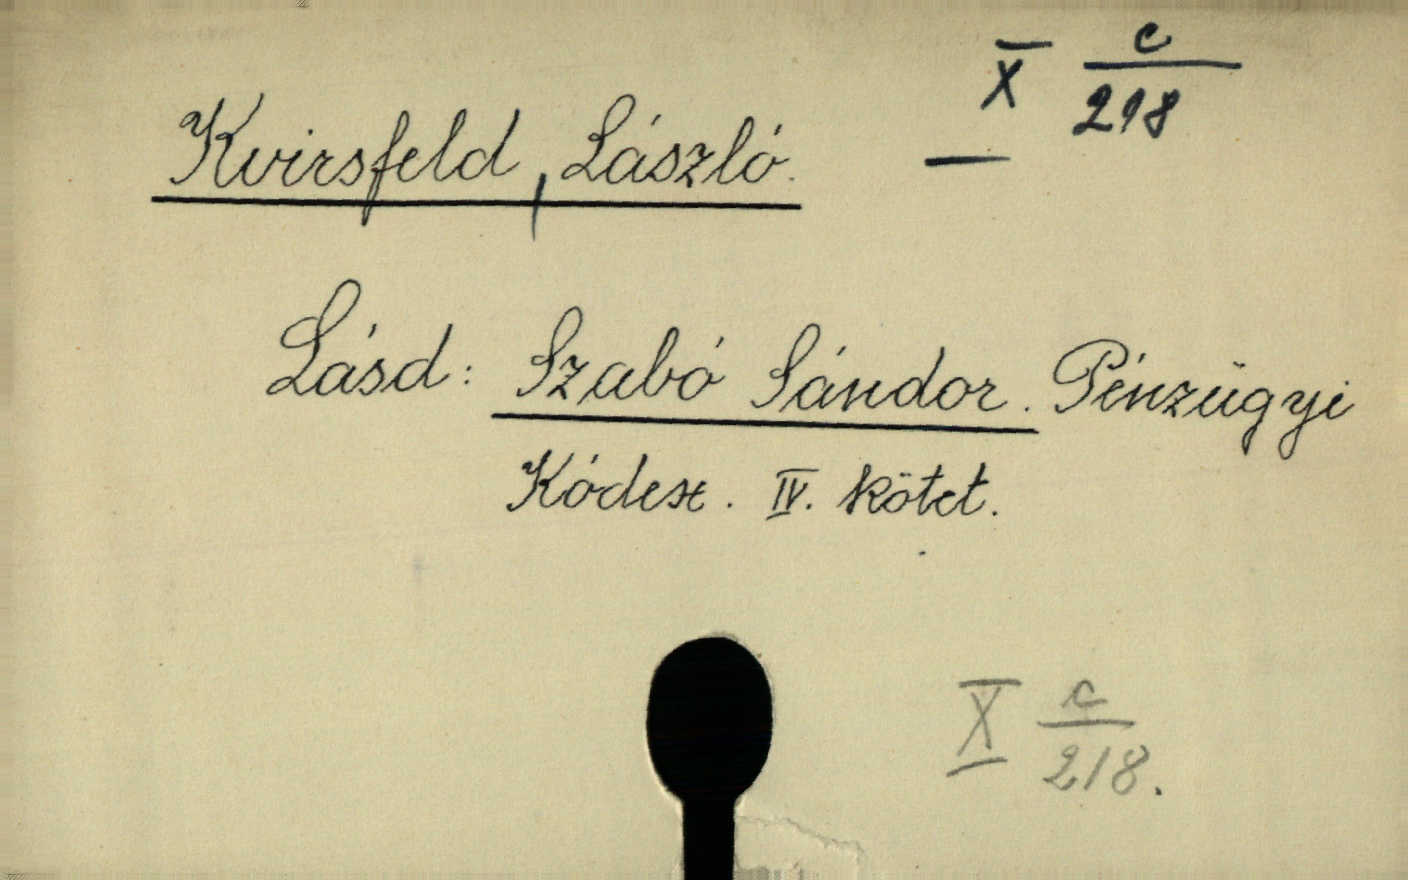 X c/218
Kvirsfeld, László.
Lásd: Szabó Sándor. Pénzügyi
Kódesx. IV. kötet.
X c/218.